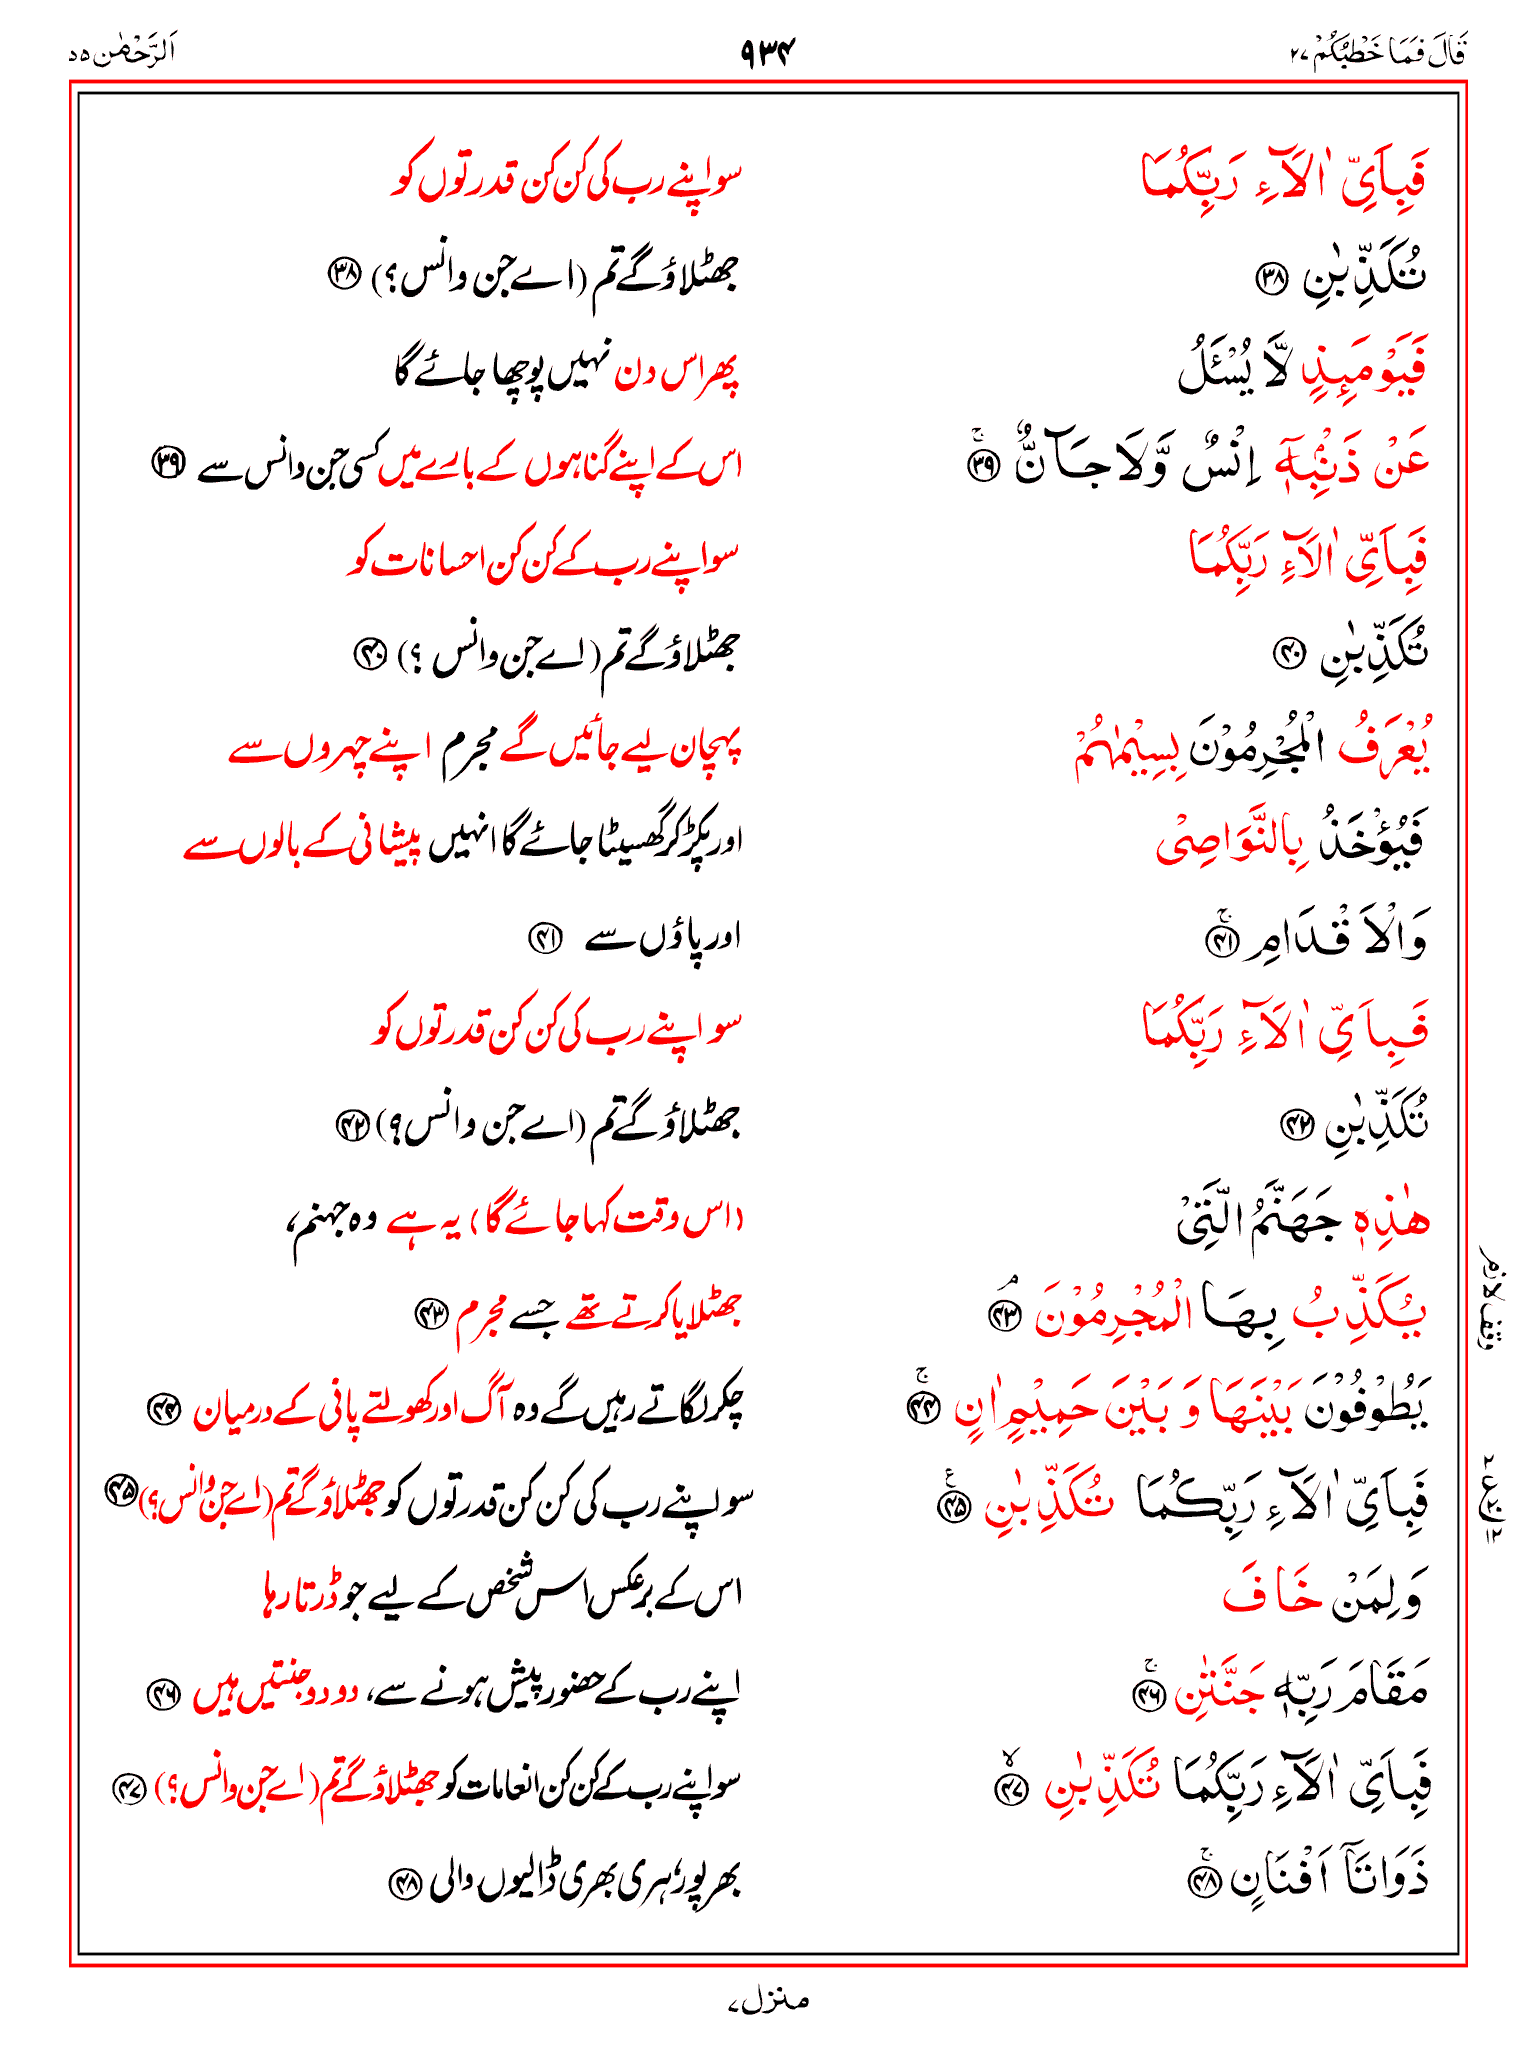 قَالَ فَمَا خَطْبُكُمْ ٢٧ ٩٣٤ اَلرَّحْمٰن ٥٥
فَبِاَيِّ اٰلَآءِ رَبِّكُمَا سو اپنے رب کی کن کن قدرتوں کو
تُكَذِّبٰنِ ﴿٣٨﴾ جھٹلاؤ گے تم (اے جن وانس؟) ﴿٣٨﴾
فَيَوْمَئِذٍ لَّا يُسْـَٔلُ پھر اس دن نہیں پوچھا جائے گا
عَنْ ذَنْۢبِهٖۤ اِنْسٌ وَّلَا جَآنٌّ ﴿٣٩﴾ۚ اس کے اپنے گناہوں کے بارے میں کسی جن وانس سے ﴿٣٩﴾
فَبِاَيِّ اٰلَآءِ رَبِّكُمَا سو اپنے رب کے کن کن احسانات کو
تُكَذِّبٰنِ ﴿٤٠﴾ جھٹلاؤ گے تم (اے جن وانس ؟) ﴿٤٠﴾
يُعْرَفُ الْمُجْرِمُوْنَ بِسِيْمٰهُمْ پہچان لیے جائیں گے مجرم اپنے چہروں سے
فَيُؤْخَذُ بِالنَّوَاصِيْ اور پکڑ کر گھسیٹا جائے گا انہیں پیشانی کے بالوں سے
وَالْاَقْدَامِ ﴿٤١﴾ۚ اور پاؤں سے ﴿٤١﴾
فَبِاَيِّ اٰلَآءِ رَبِّكُمَا سو اپنے رب کی کن کن قدرتوں کو
تُكَذِّبٰنِ ﴿٤٢﴾ جھٹلاؤ گے تم (اے جن وانس؟) ﴿٤٢﴾
هٰذِهٖ جَهَنَّمُ الَّتِيْ (اس وقت کہا جائے گا) یہ ہے وہ جہنم،
يُكَذِّبُ بِهَا الْمُجْرِمُوْنَ ﴿٤٣﴾ۘ جھٹلایا کرتے تھے جسے مجرم ﴿٤٣﴾
وقف لازم
يَطُوْفُوْنَ بَيْنَهَا وَ بَيْنَ حَمِيْمٍ اٰنٍ ﴿٤٤﴾ۚ چکر لگاتے رہیں گے وہ آگ اور کھولتے پانی کے درمیان ﴿٤٤﴾
فَبِاَيِّ اٰلَآءِ رَبِّكُمَا تُكَذِّبٰنِ ﴿٤٥﴾ۧ سو اپنے رب کی کن کن قدرتوں کو جھٹلاؤ گے تم (اے جن وانس؟) ﴿٤٥﴾
وَلِمَنْ خَافَ اس کے برعکس اس شخص کے لیے جو ڈرتا رہا
مَقَامَ رَبِّهٖ جَنَّتٰنِ ﴿٤٦﴾ۚ اپنے رب کے حضور پیش ہونے سے، دو دو جنتیں ہیں ﴿٤٦﴾
فَبِاَيِّ اٰلَآءِ رَبِّكُمَا تُكَذِّبٰنِ ﴿٤٧﴾ۙ سو اپنے رب کے کن کن انعامات کو جھٹلاؤ گے تم (اے جن وانس؟) ﴿٤٧﴾
ذَوَاتَآ اَفْنَانٍ ﴿٤٨﴾ۚ بھرپور ہری بھری ڈالیوں والی ﴿٤٨﴾
منزل ٧